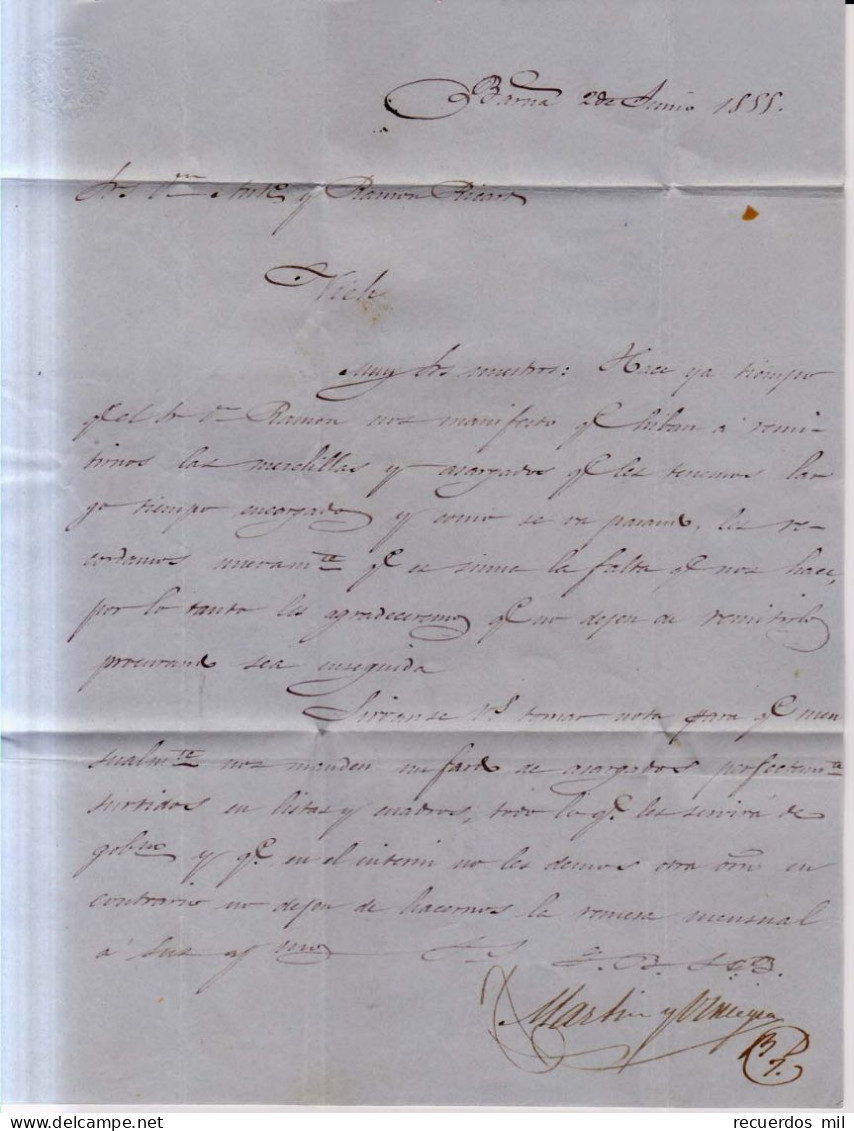 Barna 2 de Junio 1855.
Srs Dn Anto y Ramon Ricart
Vich
Muy Srs nuestros: Hace ya tiempo
qe el Sr Dn Ramon nos manifesto qe hiban á remi-
tirnos las mesclillas y asargados qe les tenemos lar
go tiempo encargados y como se va pasando, les re-
cordamos nuevamte qe es suma la falta qe nos hace,
por lo tanto les agradeceremos qe no dejen de remitirlo
procurando sea enseguida
Sirvanse Vs tomar nota para qe men
sualmte nos manden un fardo de asargados perfectamte
surtidos en listas y cuadros, todo lo qe les servirá de
gobno y qe en el interin no les demos otra orn en
contrario no dejen de hacernos la remesa mensual
á sus y mos
Q. B. S. M.
Martin y
recuerdos mil